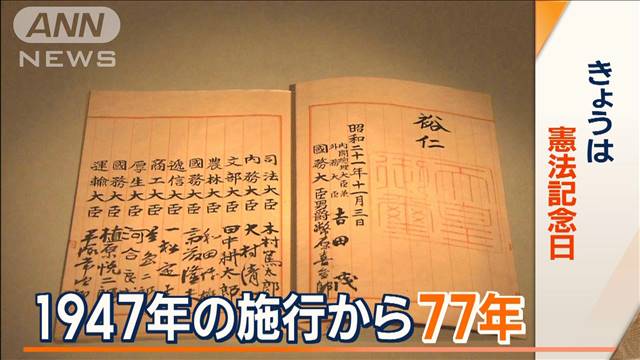 ANN
NEWS
きょうは
憲法記念日
裕仁
昭和二十一年十一月三日
内閣総理大臣兼
外務大臣 吉田茂
国務大臣 男爵 幣原喜重郎
司法大臣 木村篤太郎
内務大臣 大村清一
文部大臣 田中耕太郎
農林大臣 和田博雄
国務大臣 斎藤隆夫
逓信大臣 一松定吉
商工大臣
厚生大臣 河合良成
国務大臣 植原悦二郎
運輸大臣 平塚常次郎
1947年の施行から77年